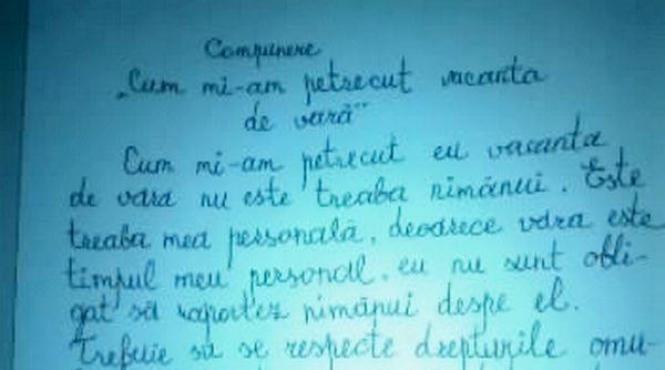 Compunere
„Cum mi-am petrecut vacanta
de vară"
Cum mi-am petrecut eu vacanta
de vara nu este treaba nimănui. Este
treaba mea personală, deoarece vara este
timpul meu personal, eu nu sunt obli-
gat să raportez nimănui despe el.
Trebuie să se respecte drepturile omu-